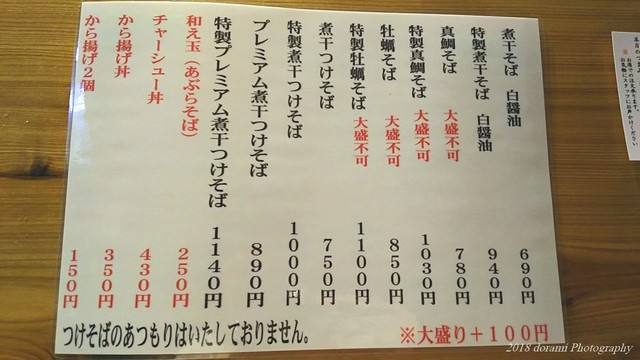 煮干そば 白醤油 690円
特製煮干そば 白醤油 940円
真鯛そば 大盛不可 780円
特製真鯛そば 大盛不可 1030円
牡蠣そば 大盛不可 850円
特製牡蠣そば 大盛不可 1100円
煮干つけそば 750円
特製煮干つけそば 1000円
プレミアム煮干つけそば 890円
特製プレミアム煮干つけそば 1140円
和え玉（あぶらそば） 250円
チャーシュー丼 430円
から揚げ丼 350円
から揚げ2個 150円
※大盛り＋100円
つけそばのあつもりはいたしておりません。
2018 dorami Photography